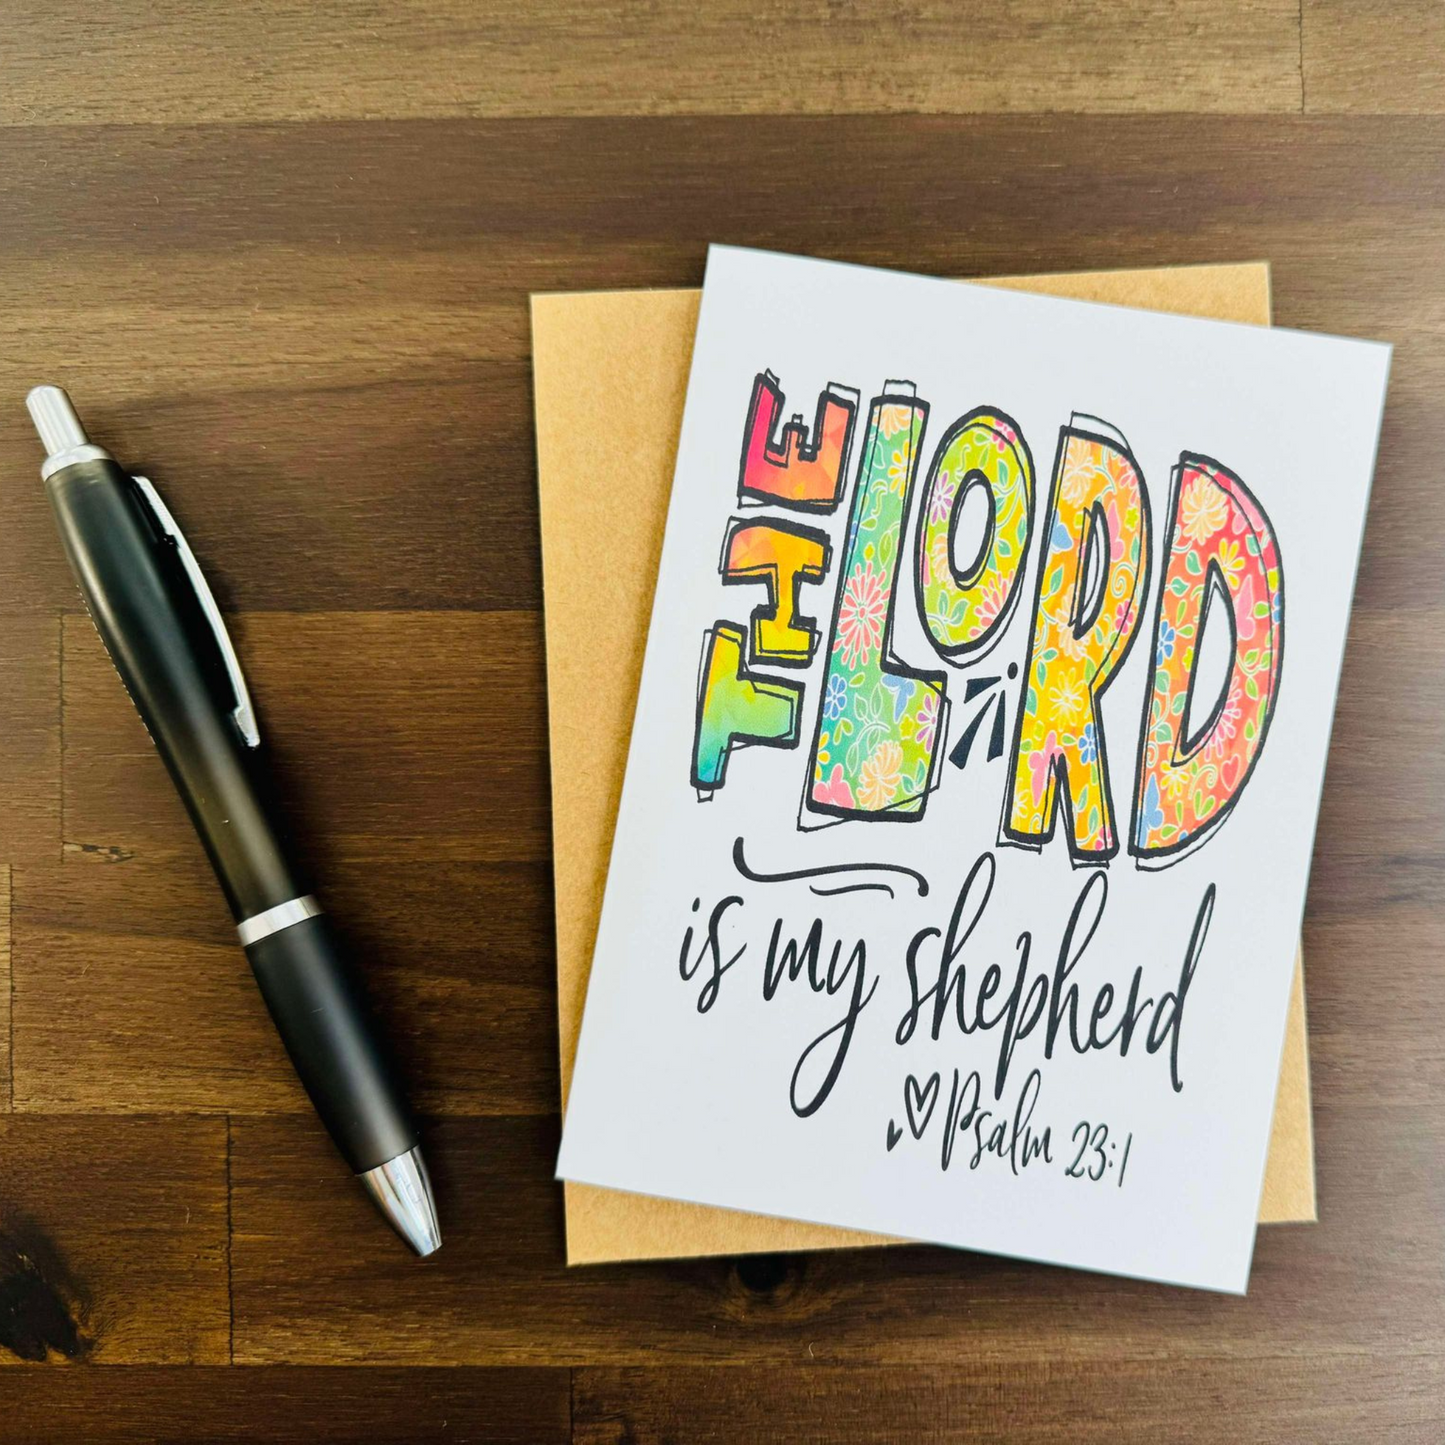 THE
LORD
is my shepherd
Psalm 23:1